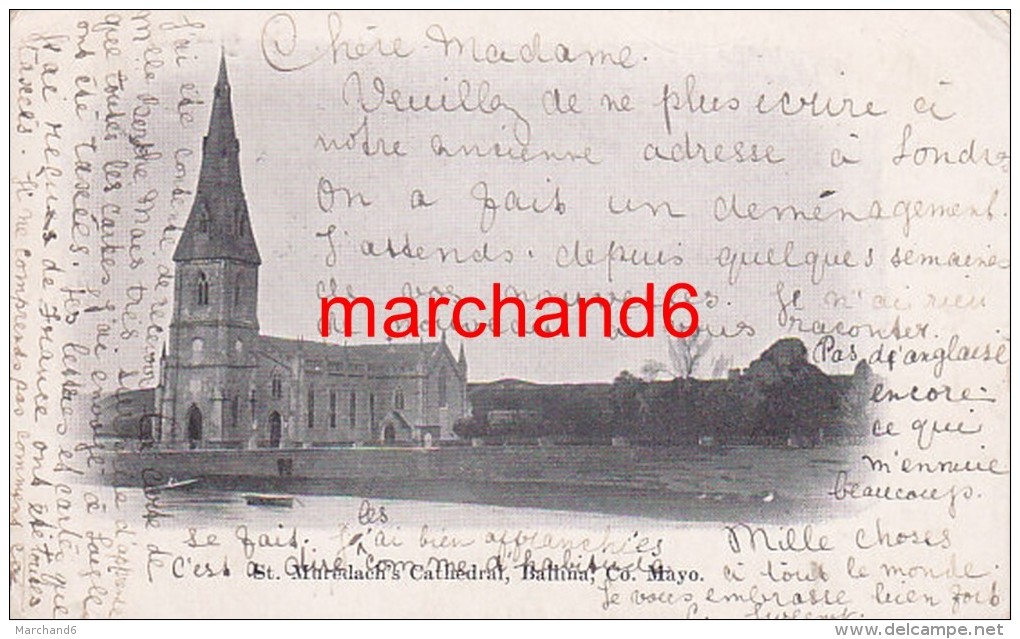 Chère Madame.
Veuillez de ne plus écrire à
notre ancienne adresse à Londres
On a fait un déménagement.
J'attends depuis quelques semaines
de vos nouvelles. Je n'ai rien
de nouveau à vous raconter.
marchand6
Pas d'anglaise
encore
ce qui
m'ennuie
beaucoup.
Mille choses
à tout le monde.
Je vous embrasse bien fort
J'ai été contente de recevoir
Mlle Mais très
que toutes les cartes j'ai envoyé à
ont été taxées. les lettres et cartes que
J'ai reçus de France ont été toutes
taxées. Je ne comprends pas comment ça
se fait. Je les ai bien affranchies
C'est comme d'habitude
St. Muredach's Cathedral, Ballina, Co. Mayo.
Marchand6
www.delcampe.net